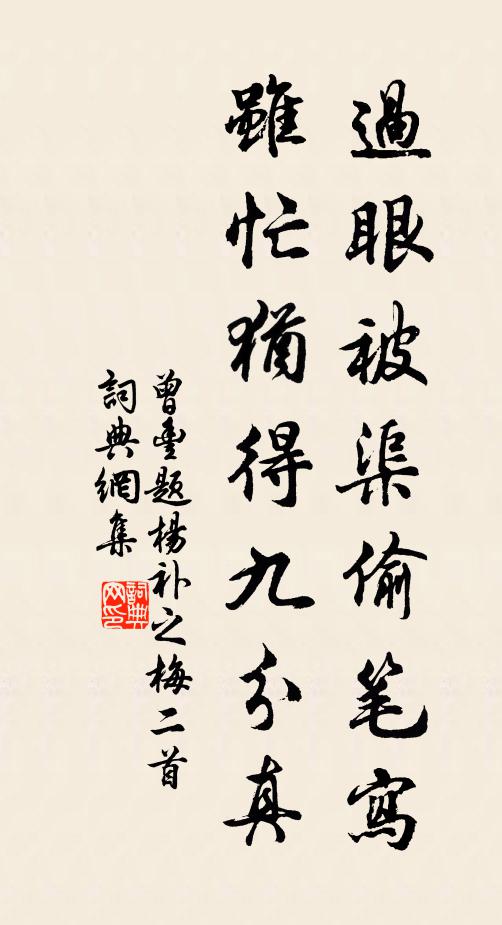 過眼被渠偷笔寫
雖忙猶得九分真
曾豐题楊补之梅二首
詞典網集
詞典
网印